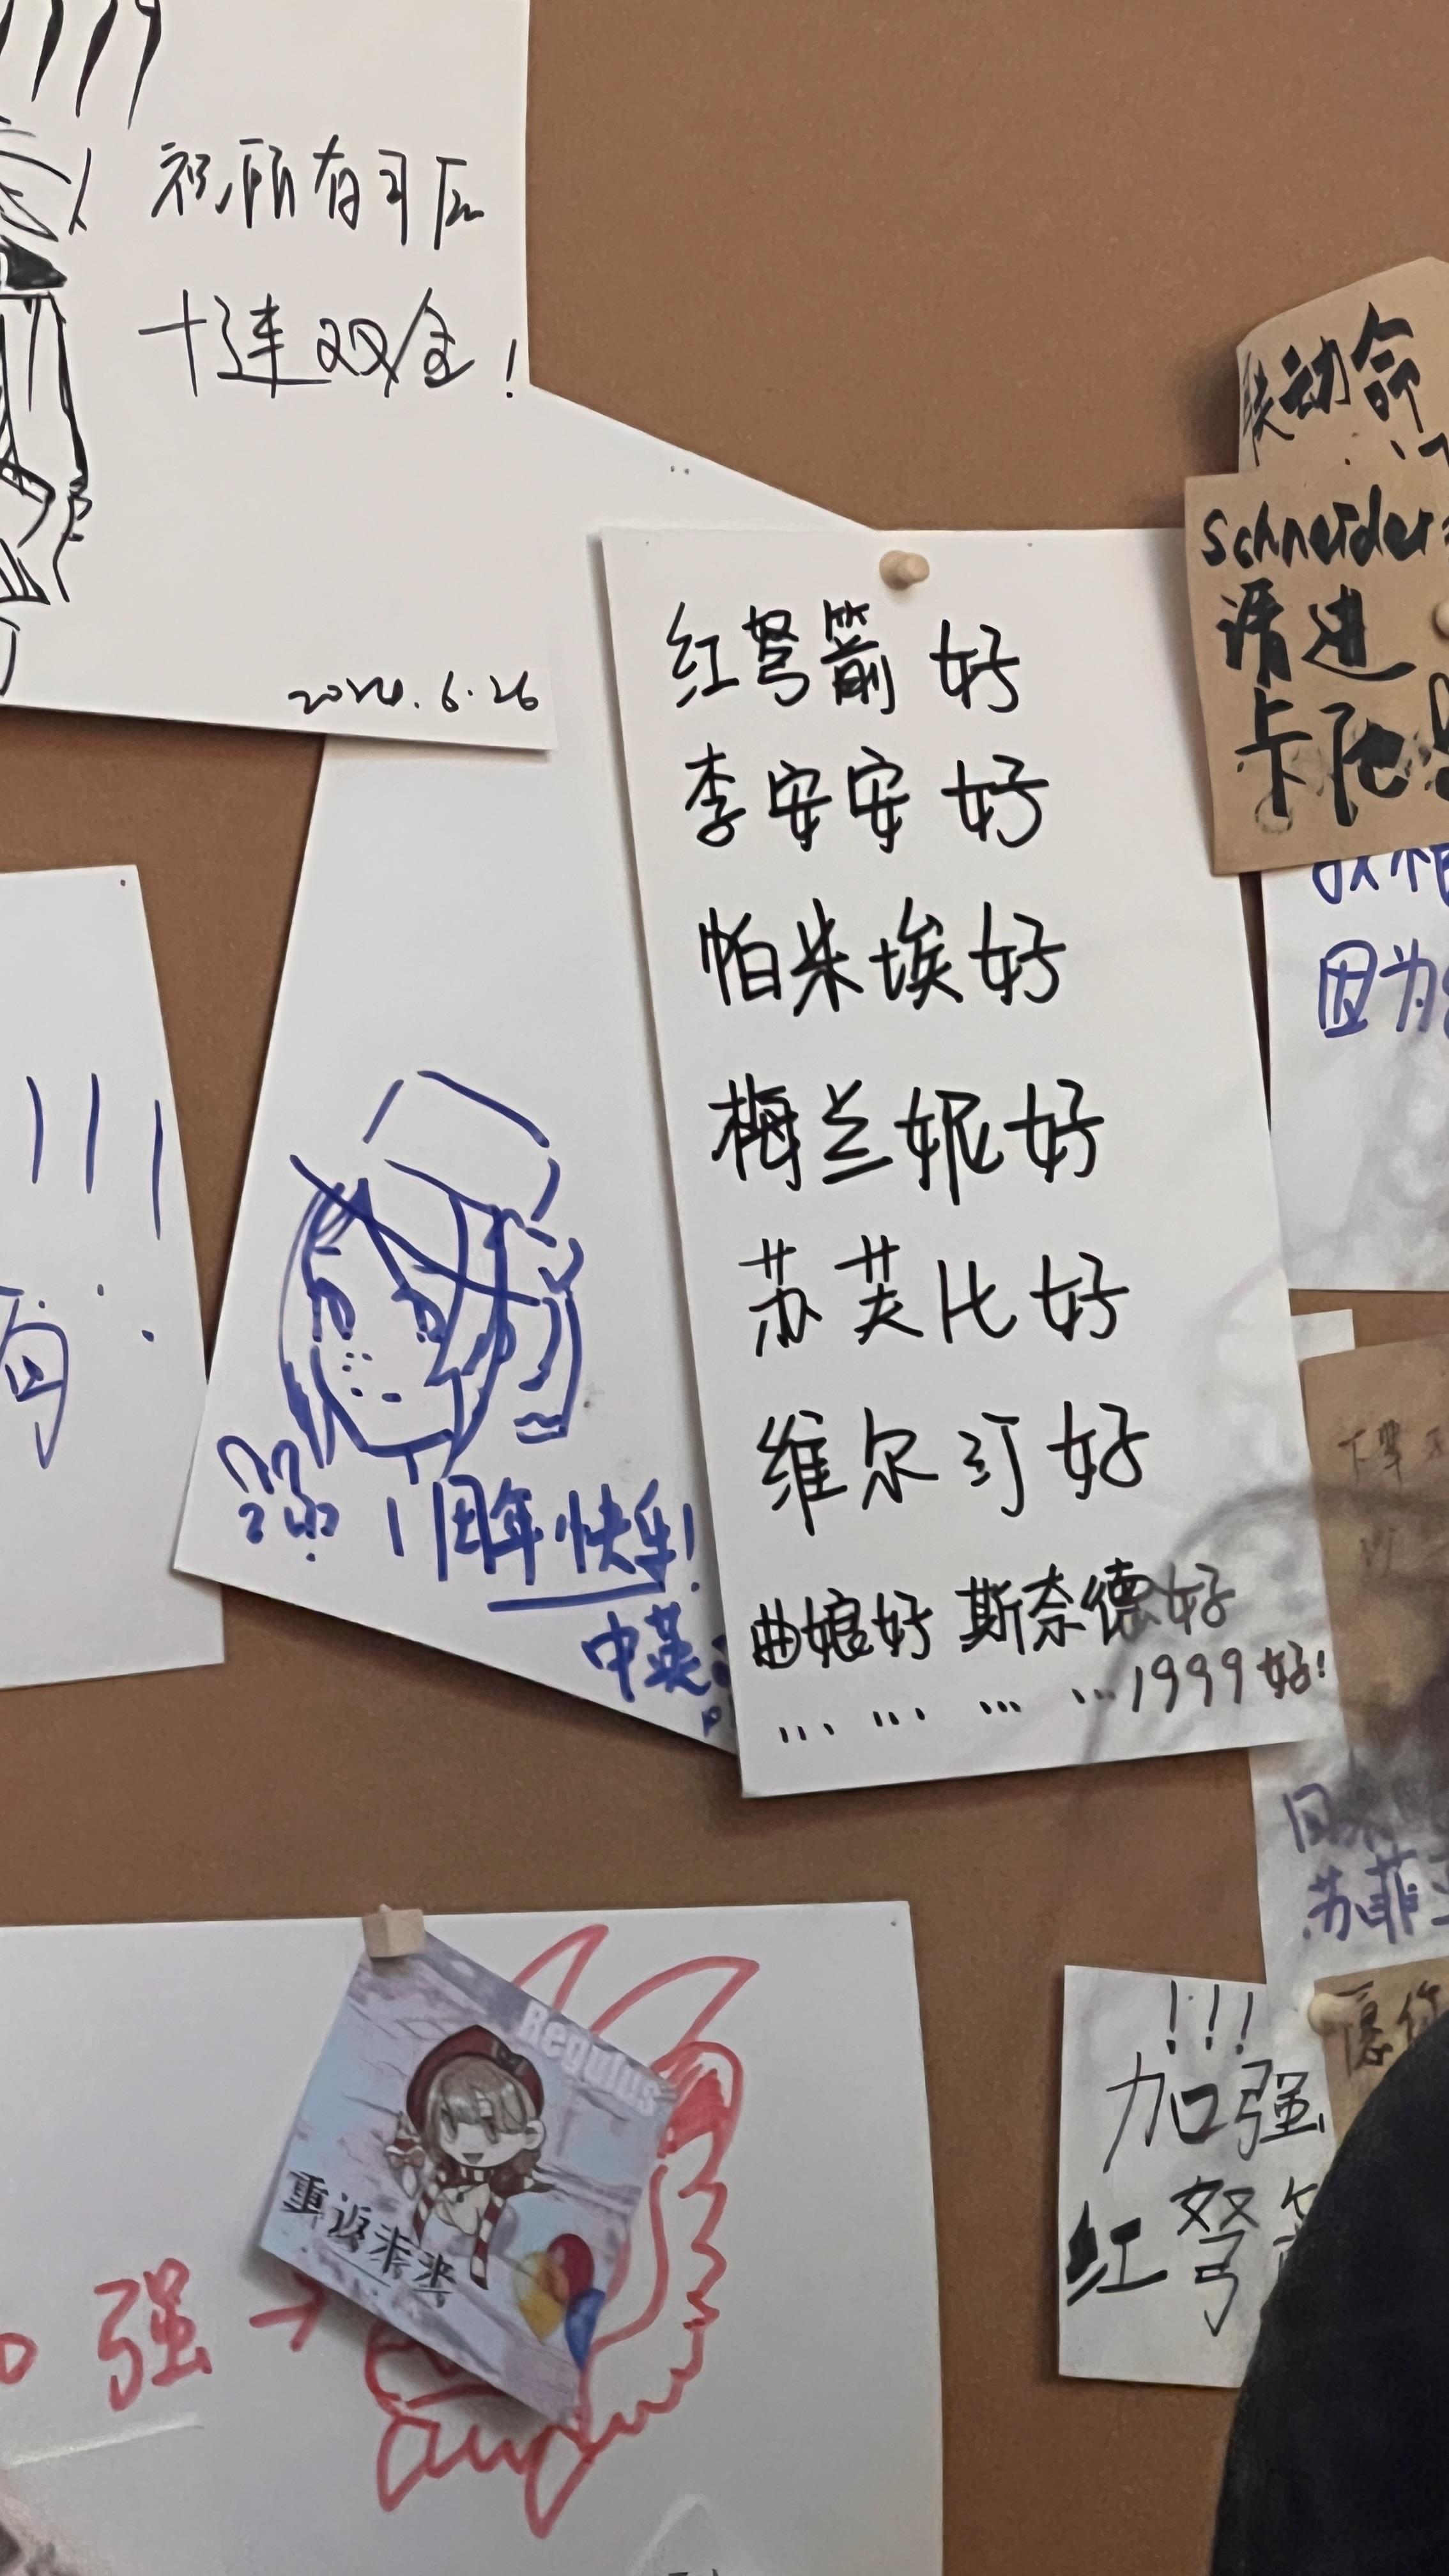 祝所有司辰
十连双金!
2024.6.26
联动命
Schneider
请进
卡池
红弩箭 好
李安安 好
帕米埃好
梅兰妮好
苏芙比好
维尔汀好
曲娘好 斯奈德好
... ... ... ...1999好!
因为
1周年快乐!
中英
苏菲
Regulus
重返未来
强
!!!
加强
红弩
愿你